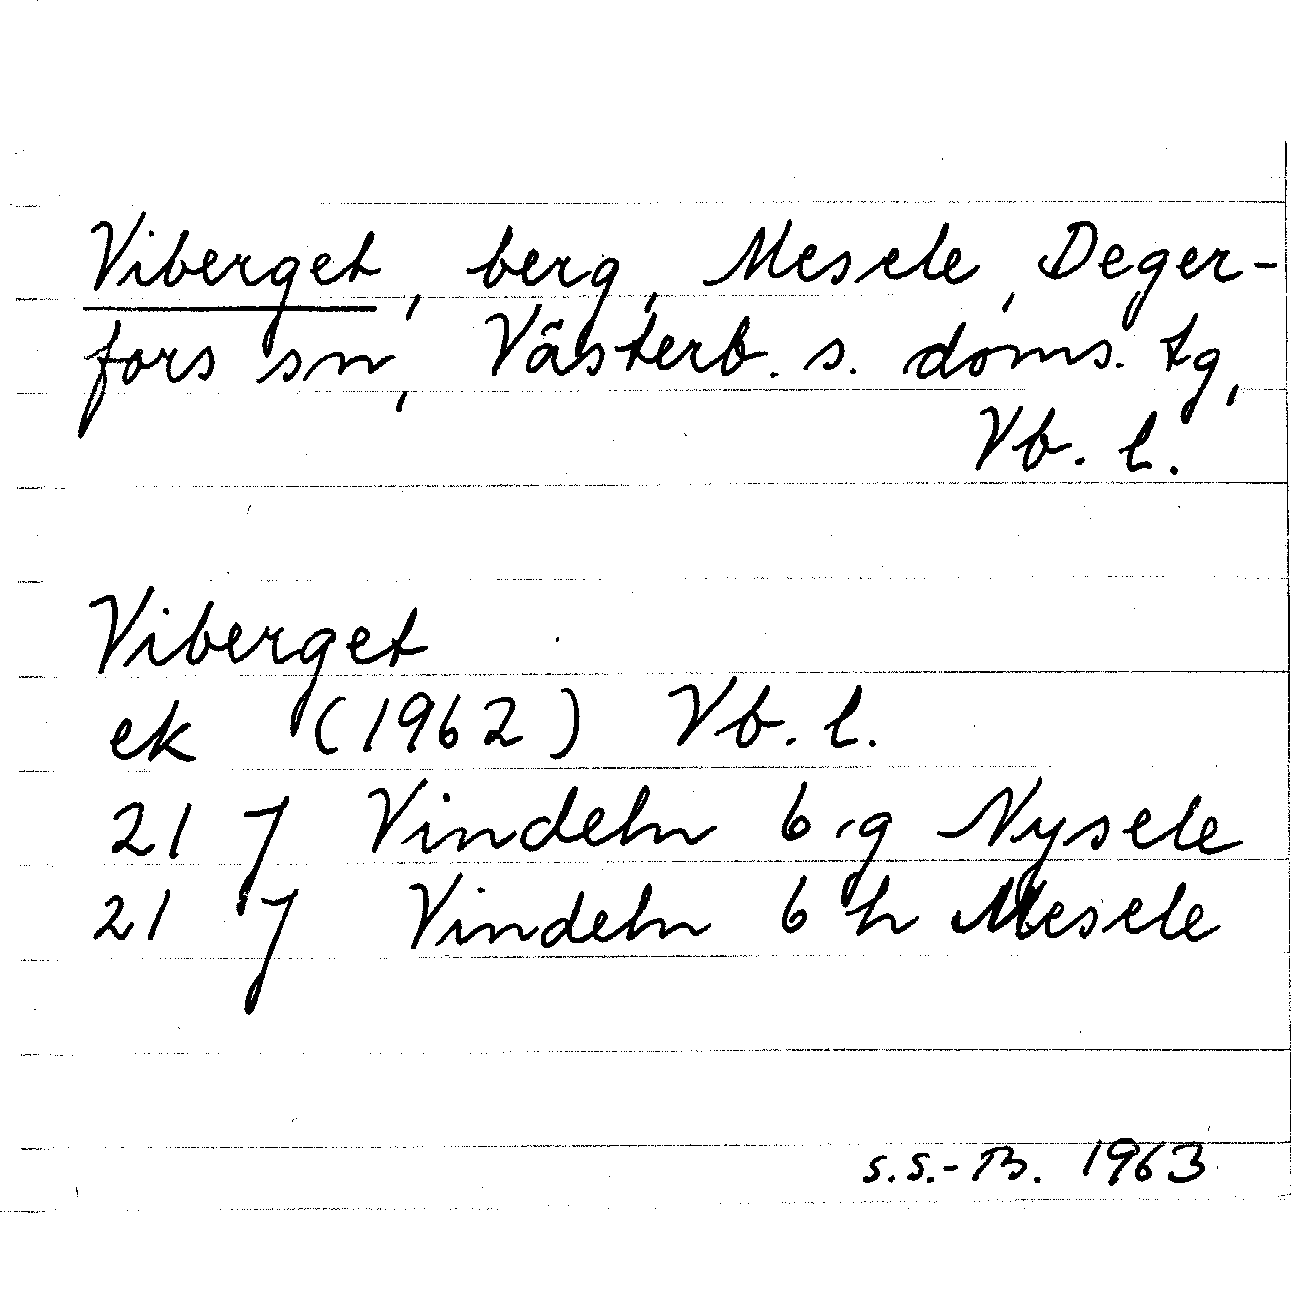 Viberget, berg, Mesele, Deger-
fors sn, Västerb. s. doms. tg,
Vb. l.
Viberget
ek (1962) Vb. l.
21 J Vindeln 6 g Nysele
21 J Vindeln 6 h Mesele
S.S.-B. 1963